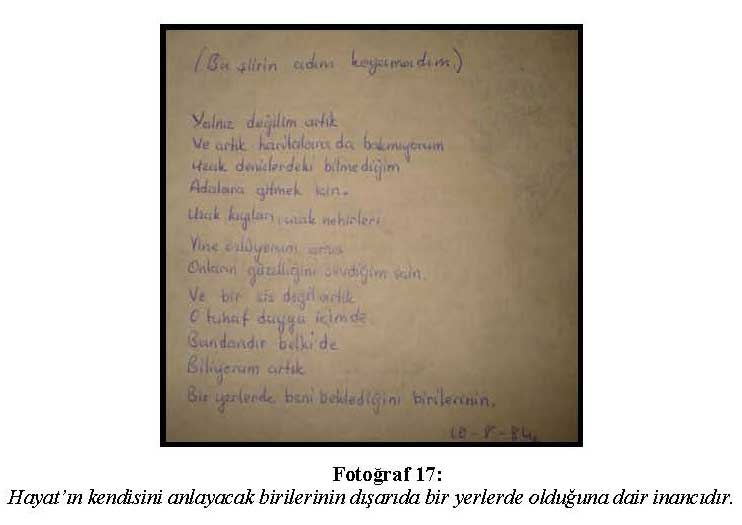 (Bu şiirin adını koyamadım.)
Yalnız değilim artık
Ve artık haritalara da bakmıyorum
Uzak denizlerdeki bilmediğim
Adalara gitmek için.
Uzak kıyıları, uzak nehirleri
Yine özlüyorum ama
Onların güzelliğini sevdiğim için.
Ve bir sis değil artık
O tuhaf duygu içimde.
Bundandır belki de
Biliyorum artık
Bir yerlerde beni beklediğini birilerinin.
Fotoğraf 17:
Hayat’ın kendisini anlayacak birilerinin dışarıda bir yerlerde olduğuna dair inancıdır.